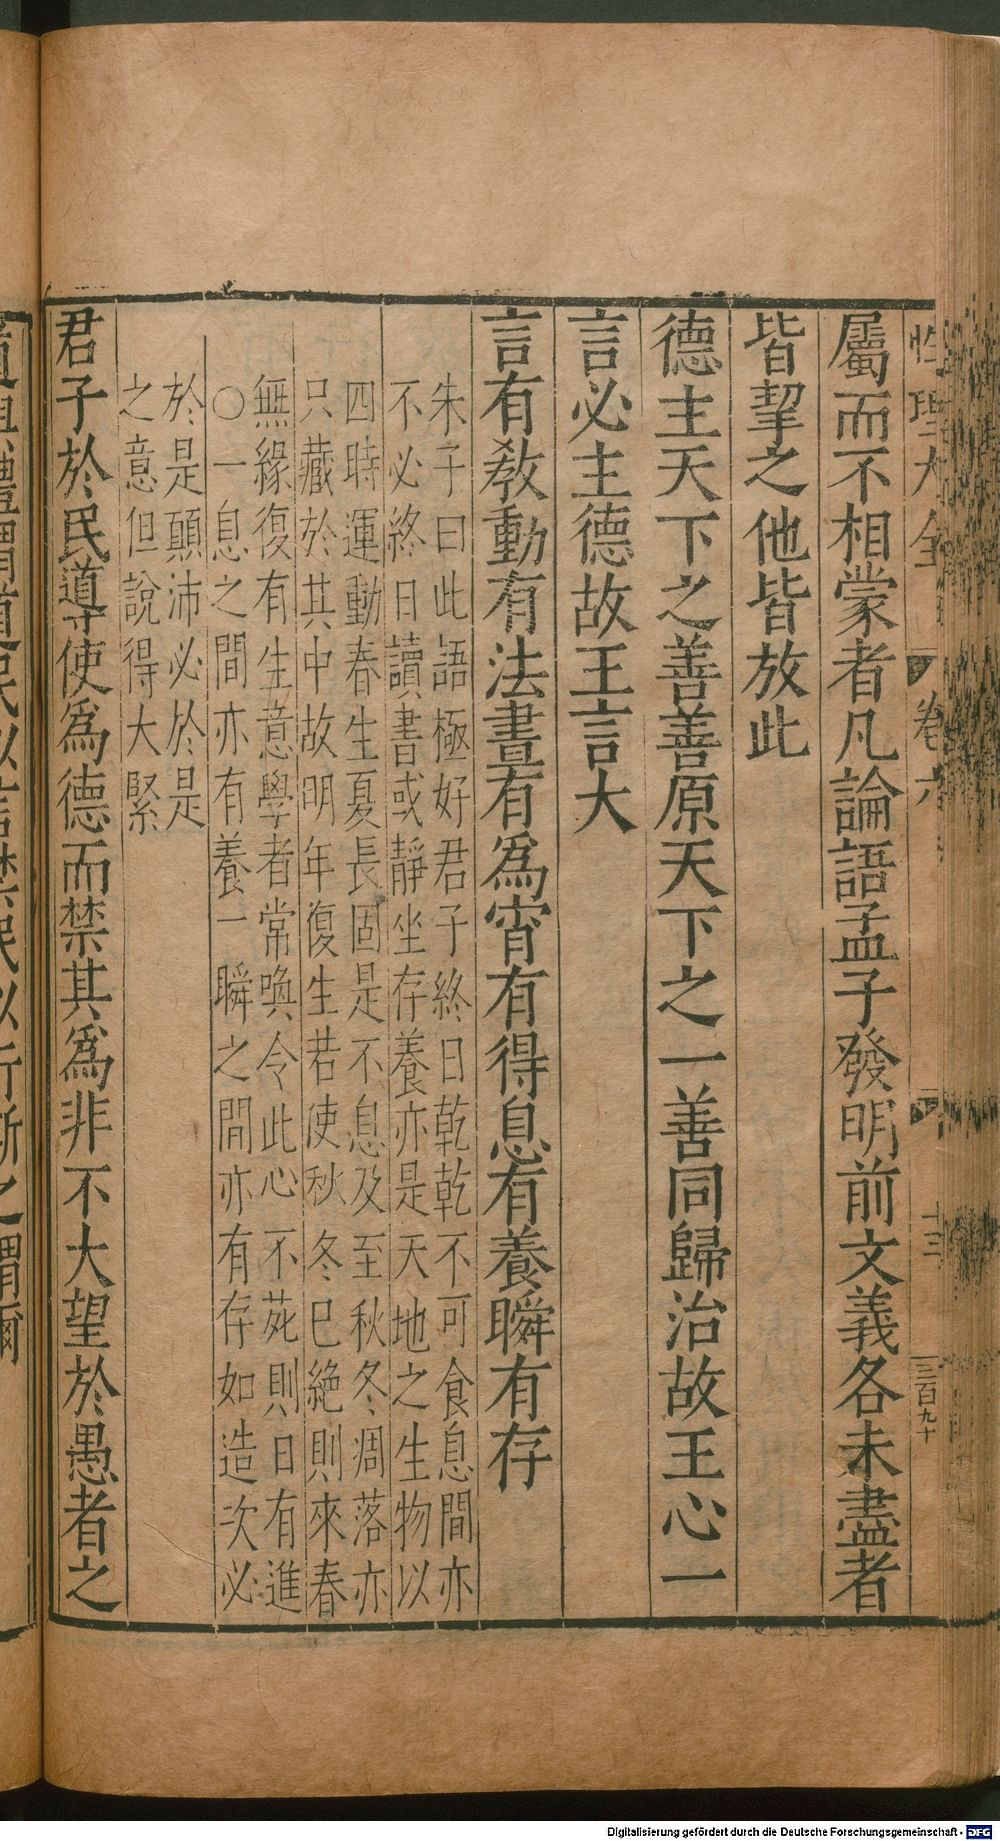 性理大全 卷六 十三 三百九十
屬而不相蒙者凡論語孟子發明前文義各未盡者
皆挈之他皆放此
德主天下之善善原天下之一善同歸治故王心一
言必主德故王言大
言有敎動有法晝有爲宵有得息有養瞬有存
朱子曰此語極好君子終日乾乾不可食息間亦
不必終日讀書或靜坐存養亦是天地之生物以
四時運動春生夏長固是不息及至秋冬凋落亦
只藏於其中故明年復生若使秋冬已絶則來春
無緣復有生意學者常喚令此心不死則日有進
○一息之間亦有養一瞬之間亦有存如造次必
於是顚沛必於是
之意但說得大緊
君子於民導使爲德而禁其爲非不大望於愚者之
道與禮謂道民以言禁民以行斯之謂爾
Digitalisierung gefördert durch die Deutsche Forschungsgemeinschaft - DFG